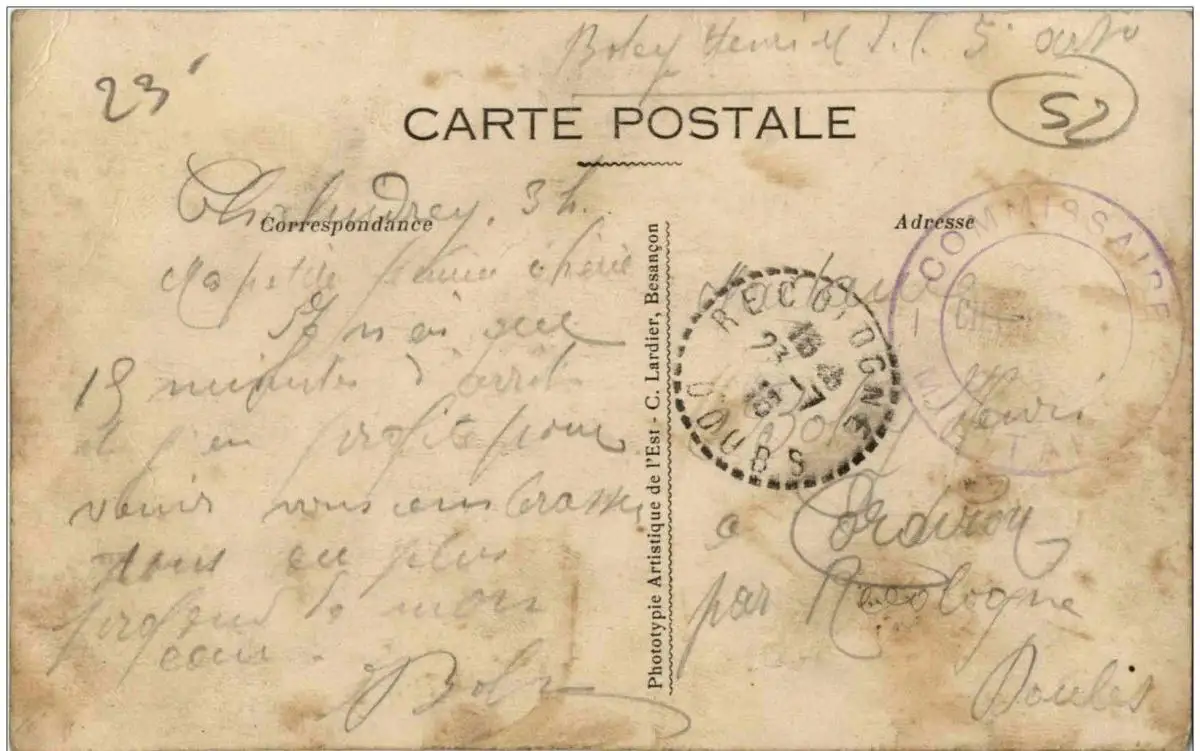 Boley Henri 5e
23
52
CARTE POSTALE
Correspondance
Adresse
Chalindrey. 3h.
Ma petite femme chérie
Je n'ai que
15 minutes d'arrêt
et j'en profite pour
venir vous embrasser
tous au plus
profond de mon
cœur.
HBoley
Phototypie Artistique de l'Est - C. Lardier, Besançon
RECOLOGNE
DOUBS
COMMISSAIRE
MILITAI
Madame
Boley Henri
à Cordiron
par Recologne
Doubs